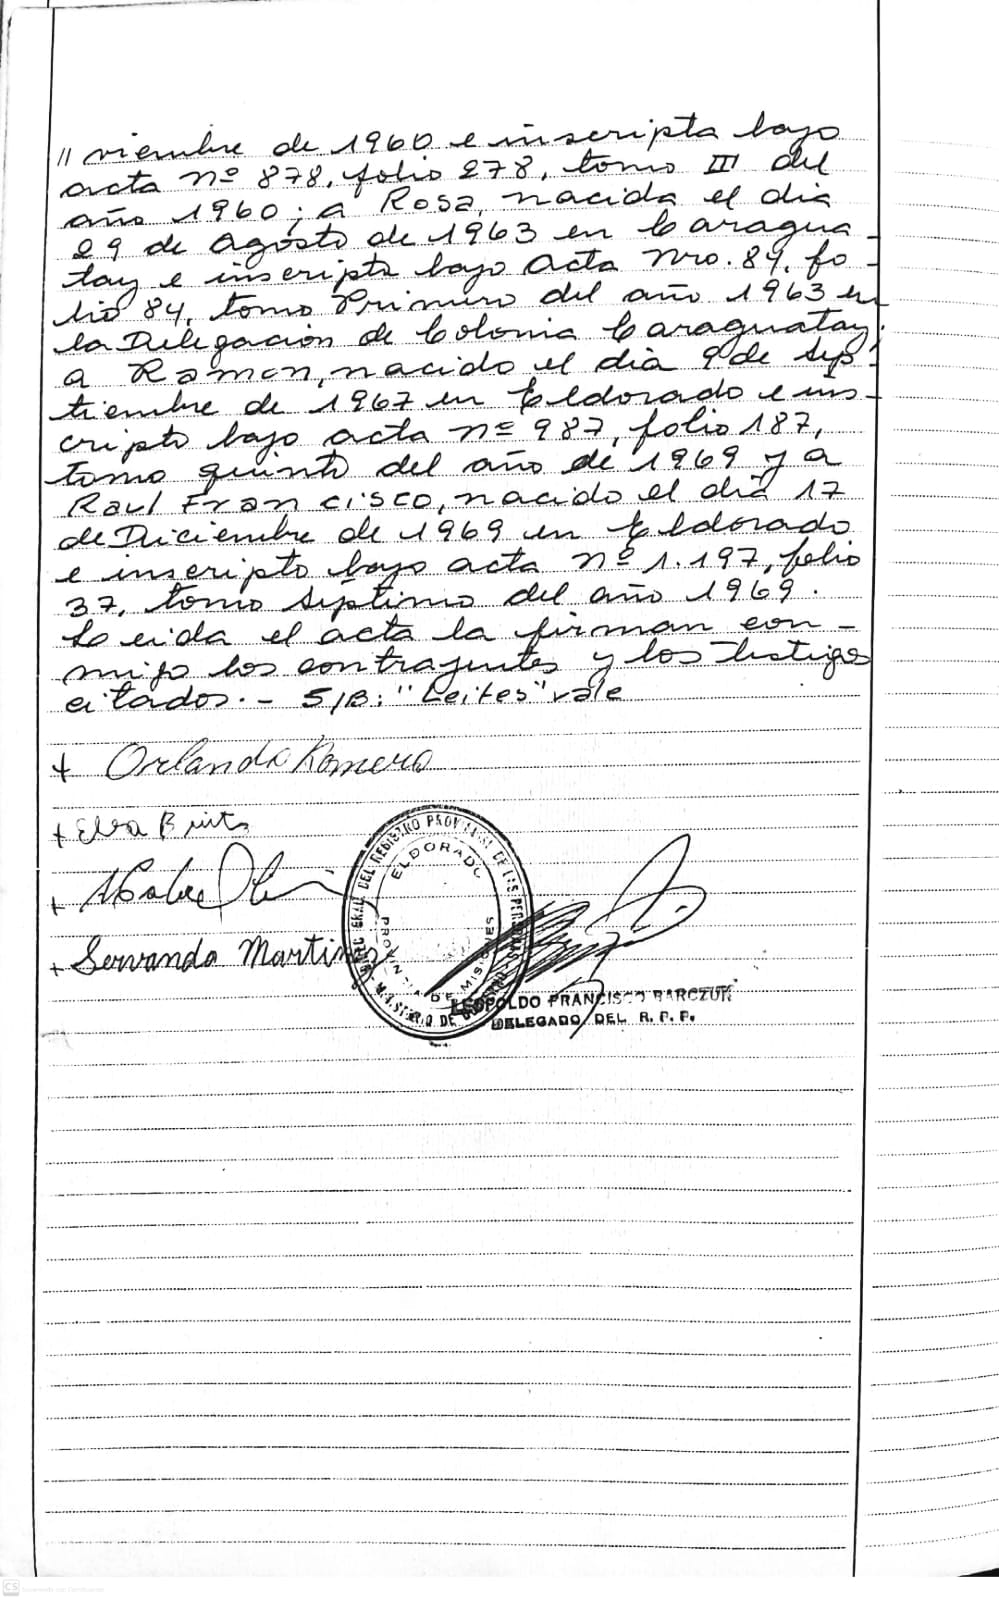 // viembre de 1960 e inscripta bajo
acta nº 878, folio 278, tomo III del
año 1960; a Rosa, nacida el dia
29 de Agosto de 1963 en Caragua-
tay e inscripta bajo Acta Nro. 84, fo-
lio 84, tomo Primero del año 1963 en
la Delegación de Colonia Caraguatay;
a Ramon, nacido el dia 9 de sep-
tiembre de 1967 en Eldorado e ins-
cripto bajo acta nº 987, folio 187,
tomo quinto del año de 1969 y a
Raul Francisco, nacido el dia 17
de Diciembre de 1969 en Eldorado
e inscripto bajo acta nº 1.197, folio
37, tomo séptimo del año 1969.
Leida el acta la firman con-
migo los contrayentes y los testigos
citados.- S/B: "Leites" vale
+ Orlando Romero
+ Elva Brits
+
+ Servanda Martines
REGISTRO PROVINCIAL DE LAS PERSONAS
ELDORADO
PROVINCIA DE MISIONES
MINISTERIO DE
LEOPOLDO FRANCISCO BARCZUK
DELEGADO DEL R. P. P.
CS